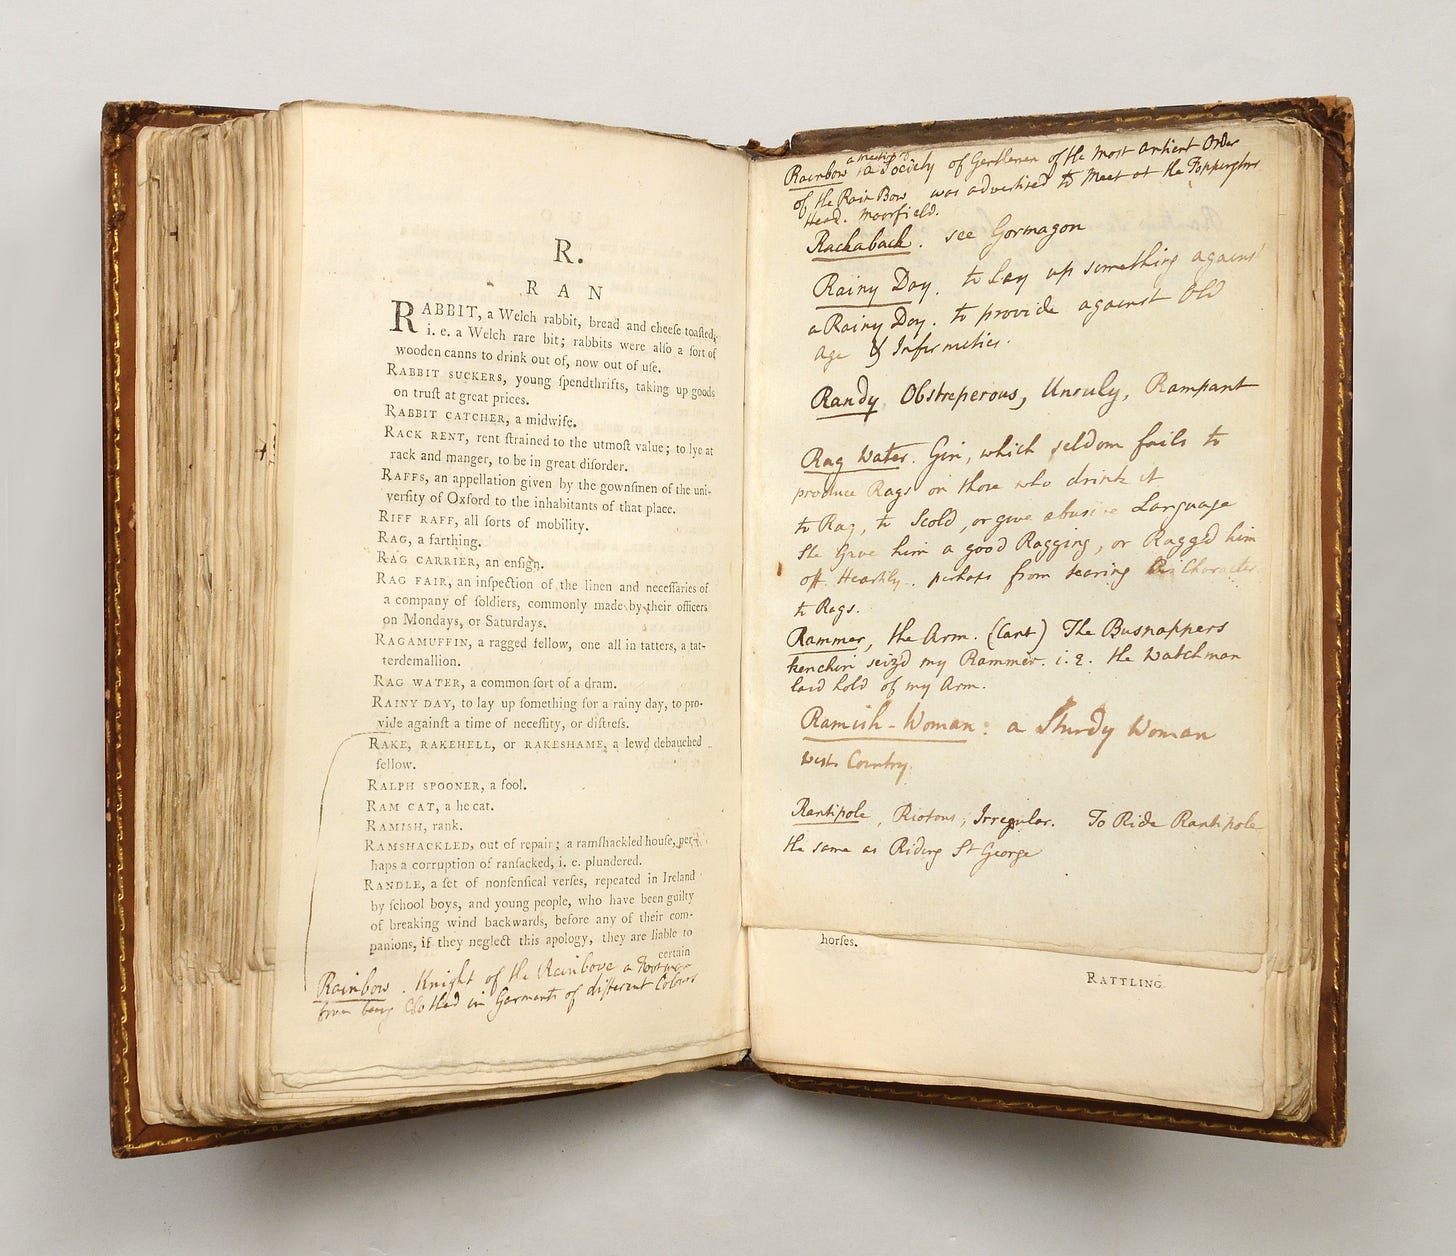 R.
R A N
RABBIT, a Welch rabbit, bread and cheeſe toaſted,
i. e. a Welch rare bit; rabbits were alſo a ſort of
wooden canns to drink out of, now out of uſe.
RABBIT SUCKERS, young ſpendthrifts, taking up goods
on truſt at great prices.
RABBIT CATCHER, a midwife.
RACK RENT, rent ſtrained to the utmoſt value; to lye at
rack and manger, to be in great diſorder.
RAFFS, an appellation given by the gownſmen of the uni-
verſity of Oxford to the inhabitants of that place.
RIFF RAFF, all ſorts of mobility.
RAG, a farthing.
RAG CARRIER, an enſign.
RAG FAIR, an inſpection of the linen and neceſſaries of
a company of ſoldiers, commonly made by their officers
on Mondays, or Saturdays.
RAGAMUFFIN, a ragged fellow, one all in tatters, a tat-
terdemallion.
RAG WATER, a common ſort of a dram.
RAINY DAY, to lay up ſomething for a rainy day, to pro-
vide againſt a time of neceſſity, or diſtreſs.
RAKE, RAKEHELL, or RAKESHAME, a lewd debauched
fellow.
RALPH SPOONER, a fool.
RAM CAT, a he cat.
RAMISH, rank.
RAMSHACKLED, out of repair; a ramſhackled houſe, per-
haps a corruption of ranſacked, i. e. plundered.
RANDLE, a ſet of nonſenſical verſes, repeated in Ireland
by ſchool boys, and young people, who have been guilty
of breaking wind backwards, before any of their com-
panions, if they neglect this apology, they are liable to
certain
Rainbow. Knight of the Rainbove a Footman
from being Clothed in Garments of different Colours
a meeting of
Rainbow a Society of Gentlemen of the Most Antient Order
of the Rain Bow was advertised to Meet at the
Head. Moorfield.
Rackaback. see Gormagon
Rainy Day. to Lay up something against
a Rainy Day. to provide against Old
Age & Infirmities.
Randy Obstreperous, Unruly, Rampant
Rag Water. Gin, which seldom fails to
produce Rags on those who drink it
to Rag, to Scold, or give abusive Language
She Gave him a good Ragging, or Ragged him
off Heartily. perhaps from tearing his Character
to Rags.
Rammer, the Arm. (Cant) The Busnappers
kenchin seiz'd my Rammer. i. e. the Watchman
laid hold of my Arm.
Ramish-Woman: a Sturdy Woman
West Country.
Rantipole, Riotous, Irregular. To Ride Rantipole
the same as Riding St George
horſes.
RATTLING.